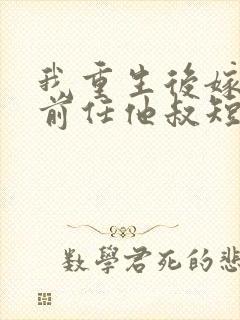 我重生後嫁
前任他叔短
數學君死的悲